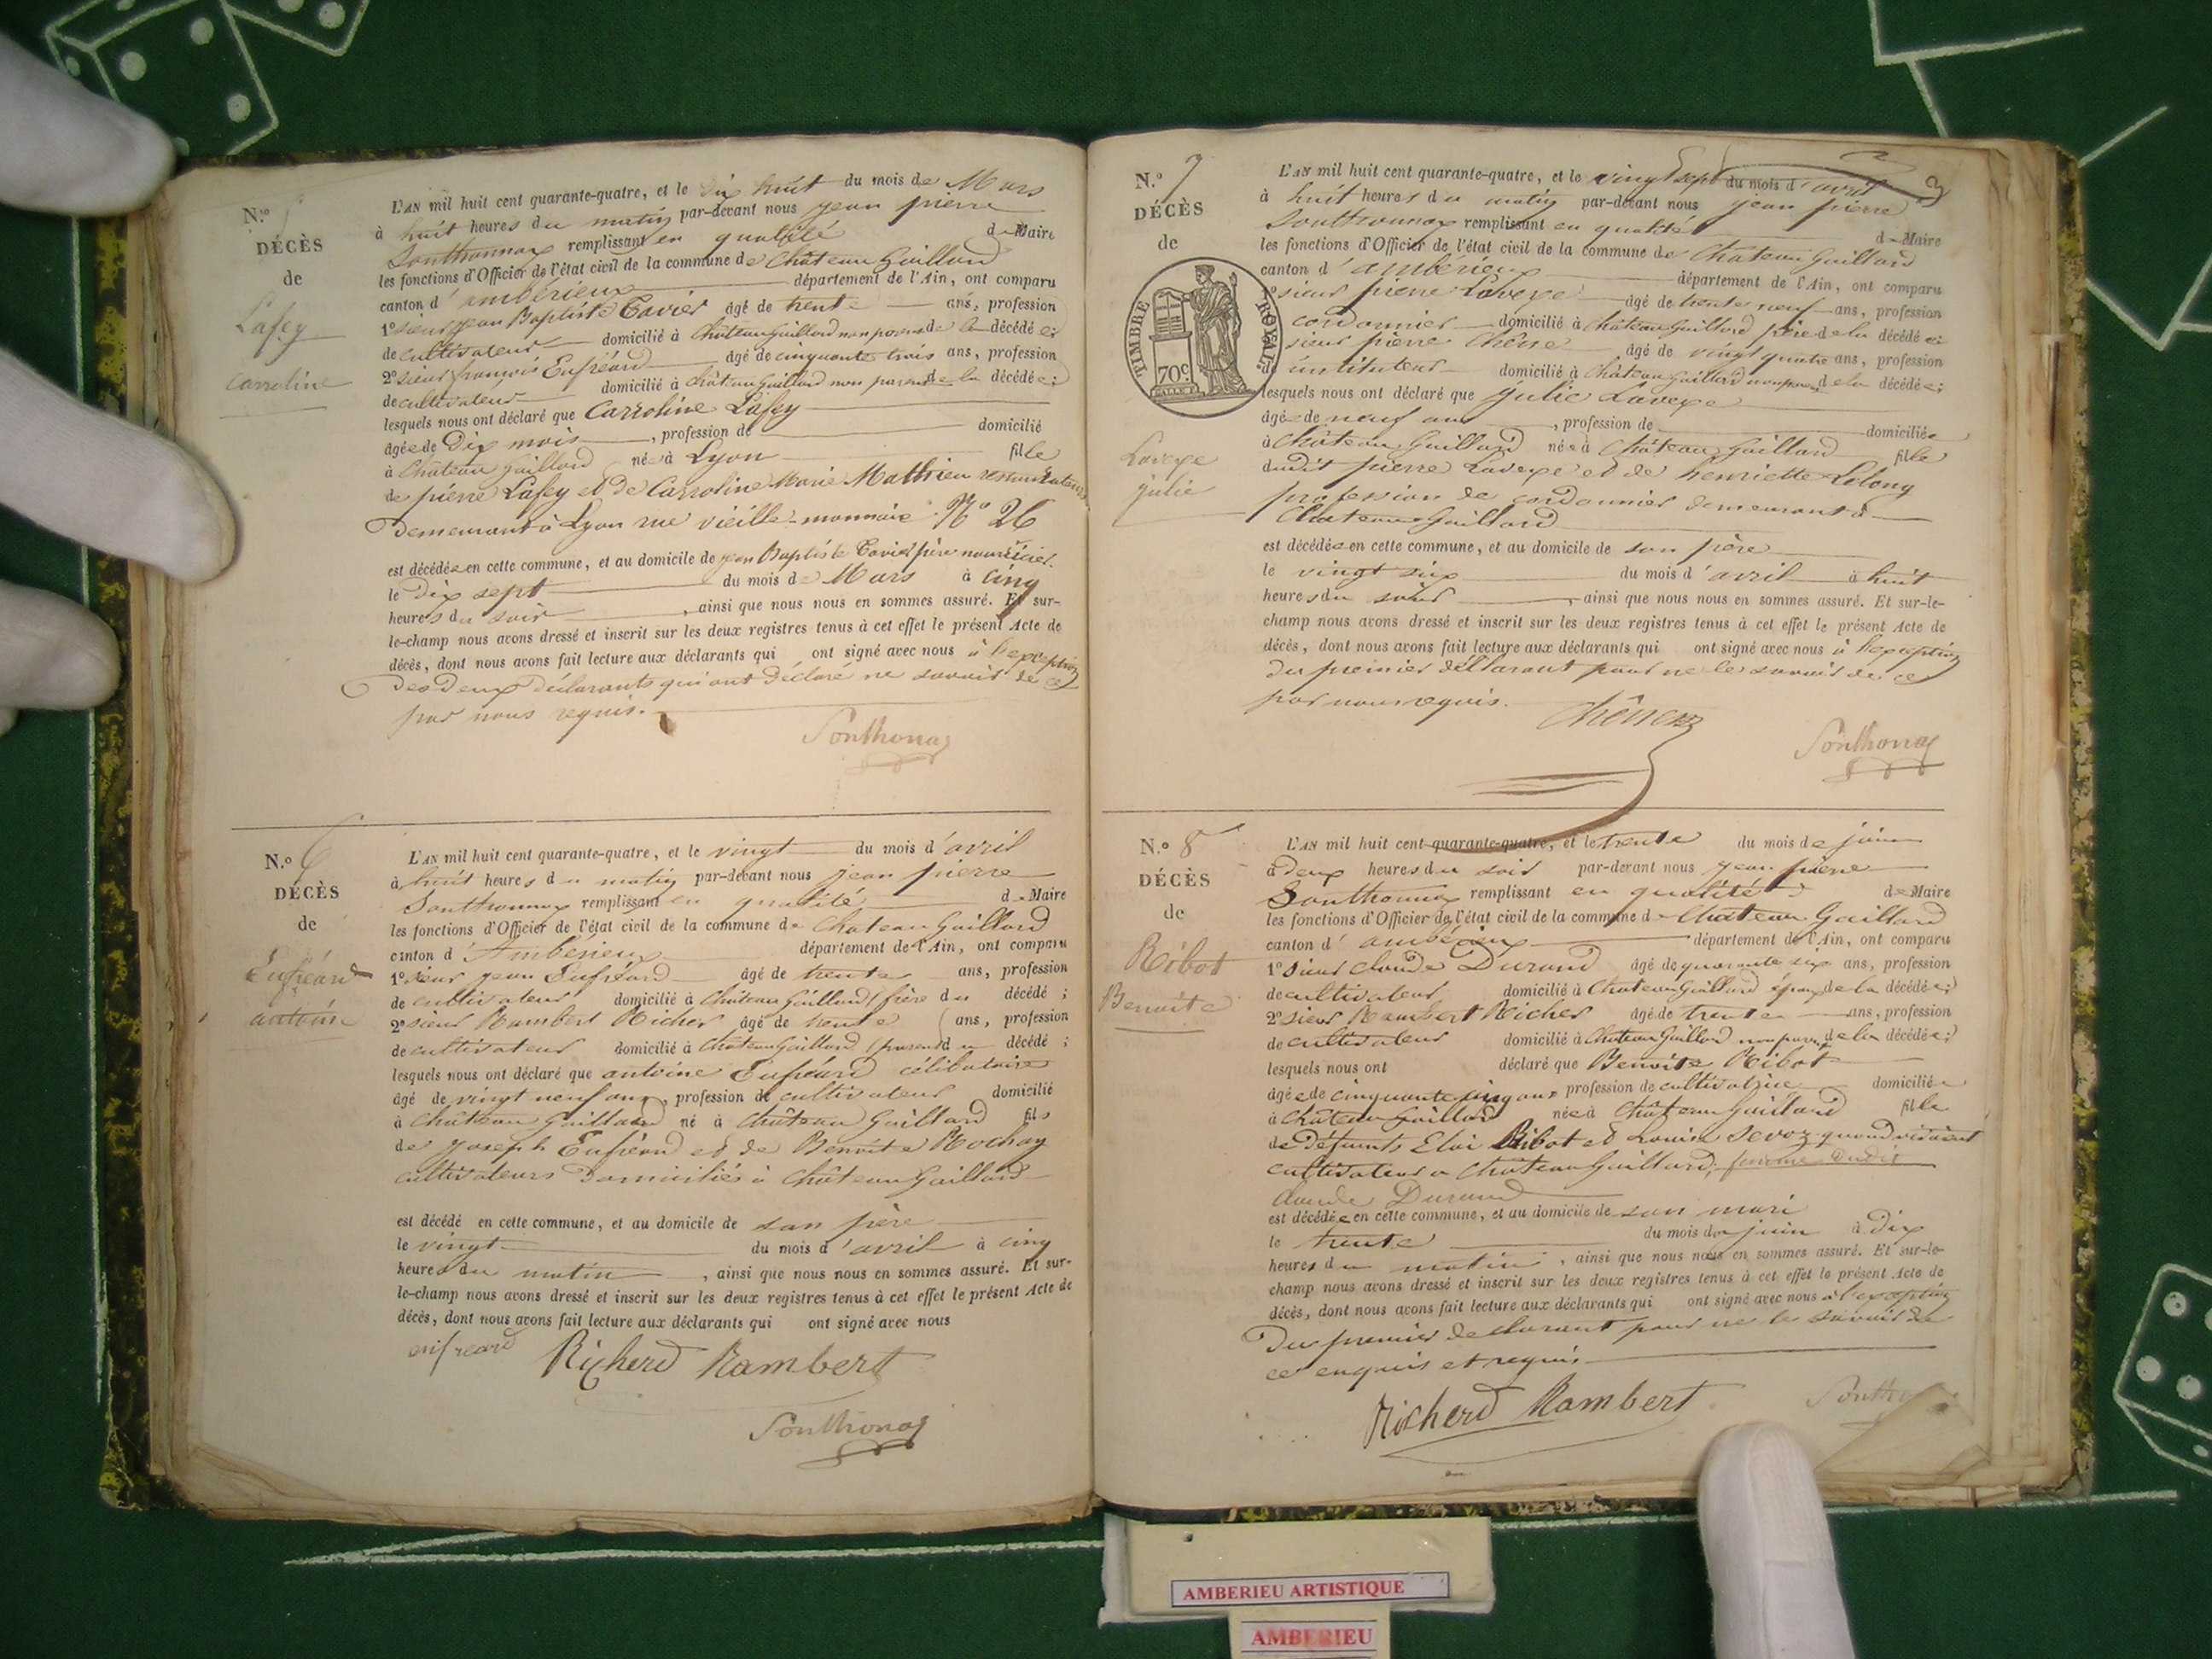 N.o 5
DÉCÈS
de
Lafey
Carroline
L'AN mil huit cent quarante-quatre, et le dix huit du mois de Mars
à huit heures du matin par-devant nous jean pierre
Southonnax remplissant en qualité de Maire
les fonctions d'Officier de l'état civil de la commune de Château Gaillard
canton d'ambérieux département de l'Ain, ont comparu
1o sieur jean Baptiste Tavier âgé de trente ans, profession
de cultivateur domicilié à Château Gaillard non parent de la décédée;
2o sieur françois Enfréard âgé de cinquante trois ans, profession
de cultivateur domicilié à château Gaillard non parent de la décédée;
lesquels nous ont déclaré que Carroline Lafey
âgée de Dix mois, profession de domicilié
à Château Gaillard née à Lyon fille
de pierre Lafey et de Carroline Marie Mathieu
Demeurant à Lyon rue vieille-monnaie No 26
est décédée en cette commune, et au domicile de jean Baptiste Tavier père nourricier.
le Dix sept du mois de Mars à cinq
heures du soir, ainsi que nous nous en sommes assuré. Et sur-
le-champ nous avons dressé et inscrit sur les deux registres tenus à cet effet le présent Acte de
décès, dont nous avons fait lecture aux déclarants qui ont signé avec nous à l'exception
des deux déclarants qui ont déclaré ne savoir de ce
par nous requis.
Southonax
N.o 6
DÉCÈS
de
Enfréard
antoine
L'AN mil huit cent quarante-quatre, et le vingt du mois d'avril
à huit heures du matin par-devant nous jean pierre
Southonnax remplissant en qualité de Maire
les fonctions d'Officier de l'état civil de la commune de Chateau Gaillard
canton d'Ambérieux département de l'Ain, ont comparu
1o sieur jean Enfréard âgé de trente ans, profession
de cultivateur domicilié à Château Gaillard frère du décédé;
2o sieur Rambert Richer âgé de trente ans, profession
de cultivateur domicilié à Château Gaillard parent du décédé;
lesquels nous ont déclaré que antoine Enfréard célibataire
âgé de vingt neuf ans, profession de cultivateur domicilié
à Château Gaillard né à Château Gaillard fils
de Joseph Enfréard et de Benoite Rochay
cultivateurs Domiciliés à Château Gaillard
est décédé en cette commune, et au domicile de son père
le vingt du mois d'avril à cinq
heures du matin, ainsi que nous nous en sommes assuré. Et sur-
le-champ nous avons dressé et inscrit sur les deux registres tenus à cet effet le présent Acte de
décès, dont nous avons fait lecture aux déclarants qui ont signé avec nous
enfreard Richerd Rambert
Southonax
3
N.o 7
DÉCÈS
de
TIMBRE ROYAL
70c.
Laveye
julie
L'AN mil huit cent quarante-quatre, et le vingt sept du mois d'avril
à huit heures du matin par-devant nous jean pierre
Southonnax remplissant en qualité de Maire
les fonctions d'Officier de l'état civil de la commune de Chateau Gaillard
canton d'ambérieux département de l'Ain, ont comparu
1o sieur pierre Laveye âgé de trente neuf ans, profession
cordonnier domicilié à Château Gaillard père de la décédée
sieur pierre Chêne âgé de vingt quatre ans, profession
instituteur domicilié à Château Gaillard non parent de la décédée;
lesquels nous ont déclaré que julie Laveye
âgée de neuf ans, profession de domiciliée
à Château Gaillard née à Château Gaillard fille
dudit pierre Laveye et de henriette Lolong
profession de cordonnier demeurant à
Chateau Gaillard
est décédée en cette commune, et au domicile de son père
le vingt six du mois d'avril à huit
heures du soir, ainsi que nous nous en sommes assuré. Et sur-le-
champ nous avons dressé et inscrit sur les deux registres tenus à cet effet le présent Acte de
décès, dont nous avons fait lecture aux déclarants qui ont signé avec nous à l'exception
du premier déclarant pour ne le savoir de ce
par nous requis.
Chêne
Southonax
N.o 8
DÉCÈS
de
Ribot
Benoite
L'AN mil huit cent quarante-quatre, et le trente du mois de juin
à deux heures du soir par-devant nous jean pierre
Southonnax remplissant en qualité de Maire
les fonctions d'Officier de l'état civil de la commune de Chateau Gaillard
canton d'ambérieux département de l'Ain, ont comparu
1o sieur claude Durand âgé de quarante six ans, profession
de cultivateur domicilié à Chateau Gaillard époux de la décédée;
2o sieur Rambert Richer âgé de trente ans, profession
de cultivateur domicilié à Chateau Gaillard non parent de la décédée;
lesquels nous ont déclaré que Benoite Ribot
âgée de cinquante cinq ans profession de cultivatrice domiciliée
à Château Gaillard née à Château Gaillard fille
de Défunts Eloi Ribot et Louise Sevoz quand vivaient
cultivateurs à Château Gaillard, femme dudit
claude Durand
est décédée en cette commune, et au domicile de son mari
le trente du mois de juin à dix
heures du matin, ainsi que nous nous en sommes assuré. Et sur-le-
champ nous avons dressé et inscrit sur les deux registres tenus à cet effet le présent Acte de
décès, dont nous avons fait lecture aux déclarants qui ont signé avec nous à l'exception
Du premier déclarant pour ne le savoir de
ce enquis et requis
Richerd Rambert
AMBERIEU ARTISTIQUE
AMBERIEU